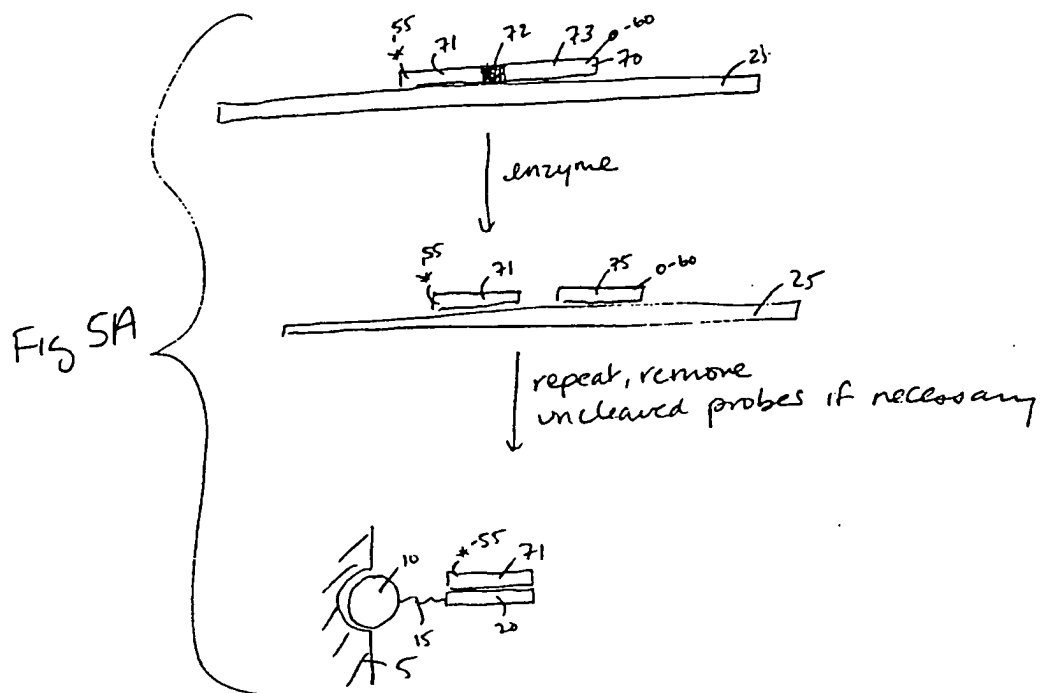 55 71 72 73 0-60
* 70 25
enzyme
55 71 75 0-60
* 25
Fig 5A
repeat, remove
uncleaved probes if necessary
10 *-55 71
15 20
5